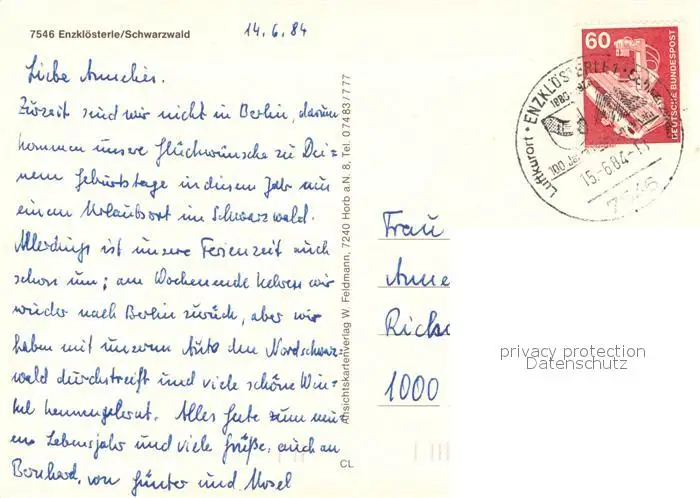 7546 Enzklösterle/Schwarzwald
14.6.84
Liebe Annelies.
Zurzeit sind wir nicht in Berlin, darum
kommen unsere Glückwünsche zu Dei=
nem Geburtstage in diesem Jahr aus
einem Urlaubsort im Schwarzwald.
Allerdings ist unsere Ferienzeit auch
schon um; am Wochenende kehren wir
wieder nach Berlin zurück, aber wir
haben mit unserem Auto den Nordschwarz=
wald durchstreift und viele schöne Win=
kel kennengelernt. Alles Gute zum neu=
en Lebensjahr und viele Grüße, auch an
Bernhard, von Günter und
Ansichtskartenverlag W. Feldmann, 7240 Horb a.N. 8, Tel. 07483/777
CL
60
DEUTSCHE BUNDESPOST
Luftkurort · ENZKLÖSTERLE
100
15.-6.84-11
7546
Frau
Anne
Rich
1000
privacy protection
Datenschutz